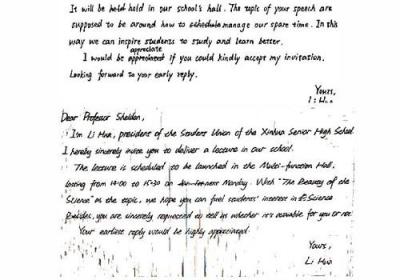 It will be held held in our school's hall. The topic of your speech are
supposed to be around how to schedule manage our spare time. In this
way we can inspire students to study and learn better.
appreciate
I would be if you could kindly accept my invitation.
Looking forward to your early reply.
Yours,
Li Hua
Dear Professor Sheldon,
I'm Li Hua, president of the Student Union of the Xinhua Senior High School.
I hereby sincerely invite you to deliver a lecture in our school.
The lecture is scheduled to be launched in the Multi-function Hall,
lasting from 14:00 to 15:30 on next Monday. With "The Beauty of the
Science" as the topic, we hope you can fuel students' interest in Science
Besides, you are sincerely requested to tell us whether it's available for you or not.
Your earliest reply would be highly appreciated.
Yours,
Li Hua